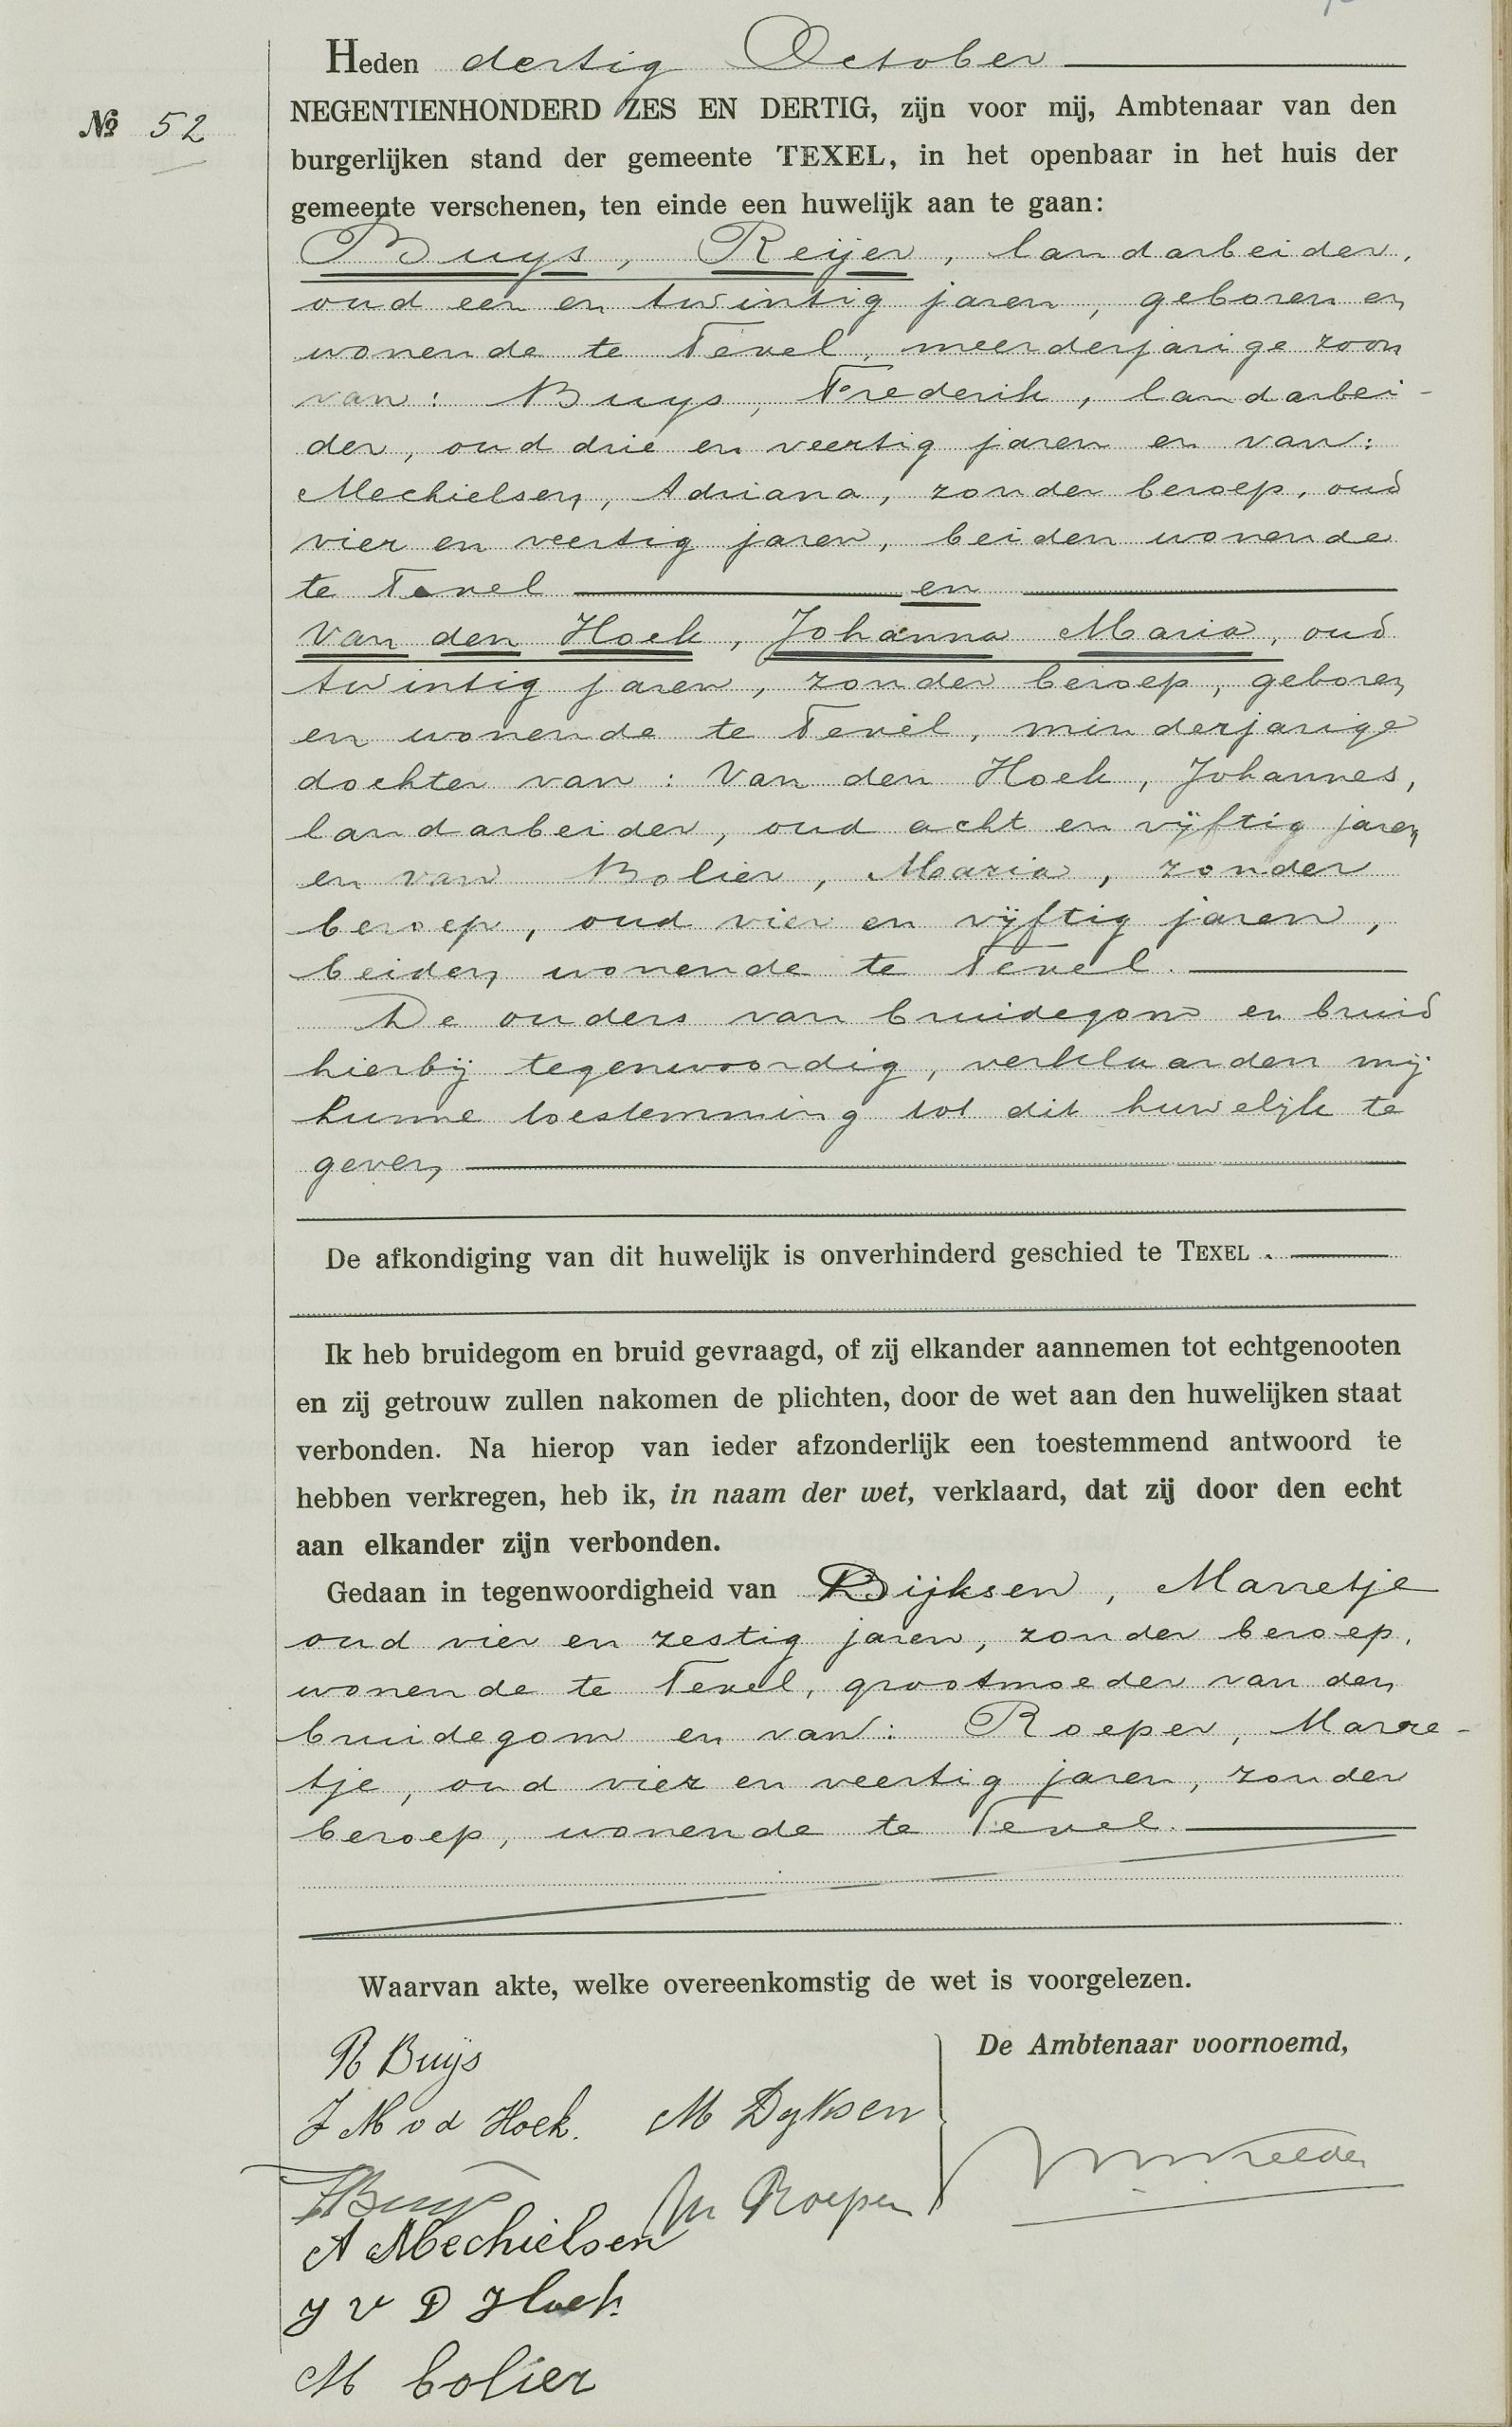 Heden dertig October
NEGENTIENHONDERD ZES EN DERTIG, zijn voor mij, Ambtenaar van den
№ 52
burgerlijken stand der gemeente TEXEL, in het openbaar in het huis der
gemeente verschenen, ten einde een huwelijk aan te gaan:
Buys, Reijer, landarbeider,
oud een en twintig jaren, geboren en
wonende te Texel, meerderjarige zoon
van: Buys, Frederik, landarbei-
der, oud drie en veertig jaren en van:
Mechielsen, Adriana, zonder beroep, oud
vier en veertig jaren, beiden wonende
te Texel en
Van den Hoek, Johanna Maria, oud
twintig jaren, zonder beroep, geboren
en wonende te Texel, minderjarige
dochter van: Van den Hoek, Johannes,
landarbeider, oud acht en vijftig jaren
en van Bolier, Maria, zonder
beroep, oud vier en vijftig jaren,
beiden wonende te Texel.
De ouders van bruidegom en bruid
hierbij tegenwoordig, verklaarden mij
hunne toestemming tot dit huwelijk te
geven,
De afkondiging van dit huwelijk is onverhinderd geschied te TEXEL.
Ik heb bruidegom en bruid gevraagd, of zij elkander aannemen tot echtgenooten
en zij getrouw zullen nakomen de plichten, door de wet aan den huwelijken staat
verbonden. Na hierop van ieder afzonderlijk een toestemmend antwoord te
hebben verkregen, heb ik, in naam der wet, verklaard, dat zij door den echt
aan elkander zijn verbonden.
Gedaan in tegenwoordigheid van Dijksen, Marretje
oud vier en zestig jaren, zonder beroep,
wonende te Texel, grootmoeder van den
bruidegom en van: Roeper, Marre-
tje, oud vier en veertig jaren, zonder
beroep, wonende te Texel.
Waarvan akte, welke overeenkomstig de wet is voorgelezen.
De Ambtenaar voornoemd,
R Buijs
J M v d Hoek. M Dyksen
F Buys M Roeper
A Mechielsen
J v D Hoek
M Bolier